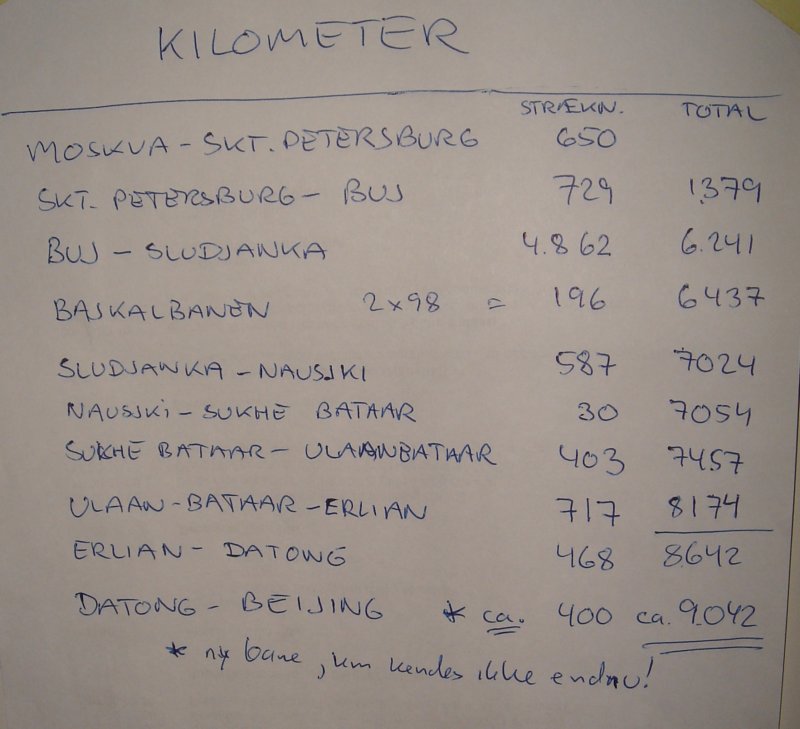 KILOMETER
STRÆKN. TOTAL
MOSKVA - SKT. PETERSBURG 650
SKT. PETERSBURG - BUJ 729 1.379
BUJ - SLUDJANKA 4.862 6.241
BAJKALBANEN 2 x 98 = 196 6437
SLUDJANKA - NAUSJKI 587 7024
NAUSJKI - SUKHE BATAAR 30 7054
SUKHE BATAAR - ULAANBATAAR 403 7457
ULAAN-BATAAR - ERLIAN 717 8174
ERLIAN - DATONG 468 8642
DATONG - BEIJING * ca. 400 ca. 9.042
* ny bane, km kendes ikke endnu!